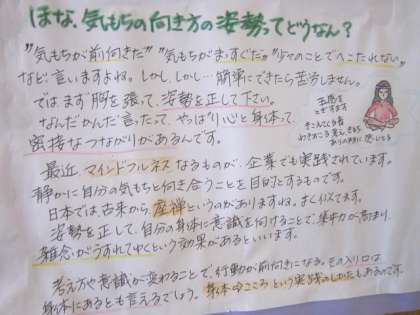 ほな、気もちの向き方の姿勢ってどうなん?
"気もちが前向きだ" "気もちがまっすぐだ" "少々のことでへこたれない"
など言いますよね。しかし、しかし…簡単にできたら苦労しません。
では、まず胸を張って、姿勢を正して下さい。
なんだかんだ言ったって、やっぱり心と身体って、
密接なつながりがあるんです。
五感を
とぎすます
きこえてくる音
ありのままに感じとる
最近、マインドフルネスなるものが、企業でも実践されています。
静かに自分の気もちと向き合うことを目的とするものです。
日本では、古来から座禅というのがありますね。よくイスてます。
姿勢を正して、自分の身体に意識を向けることで、集中力が高まり、
雑念がうすれてゆくという効果があるといいます。
考え方や意識が変わることで、行動が前向きになる。その入り口は
身体にあるとも言えるでしょう。身体⇔こころという実践のしかたもあるのです。